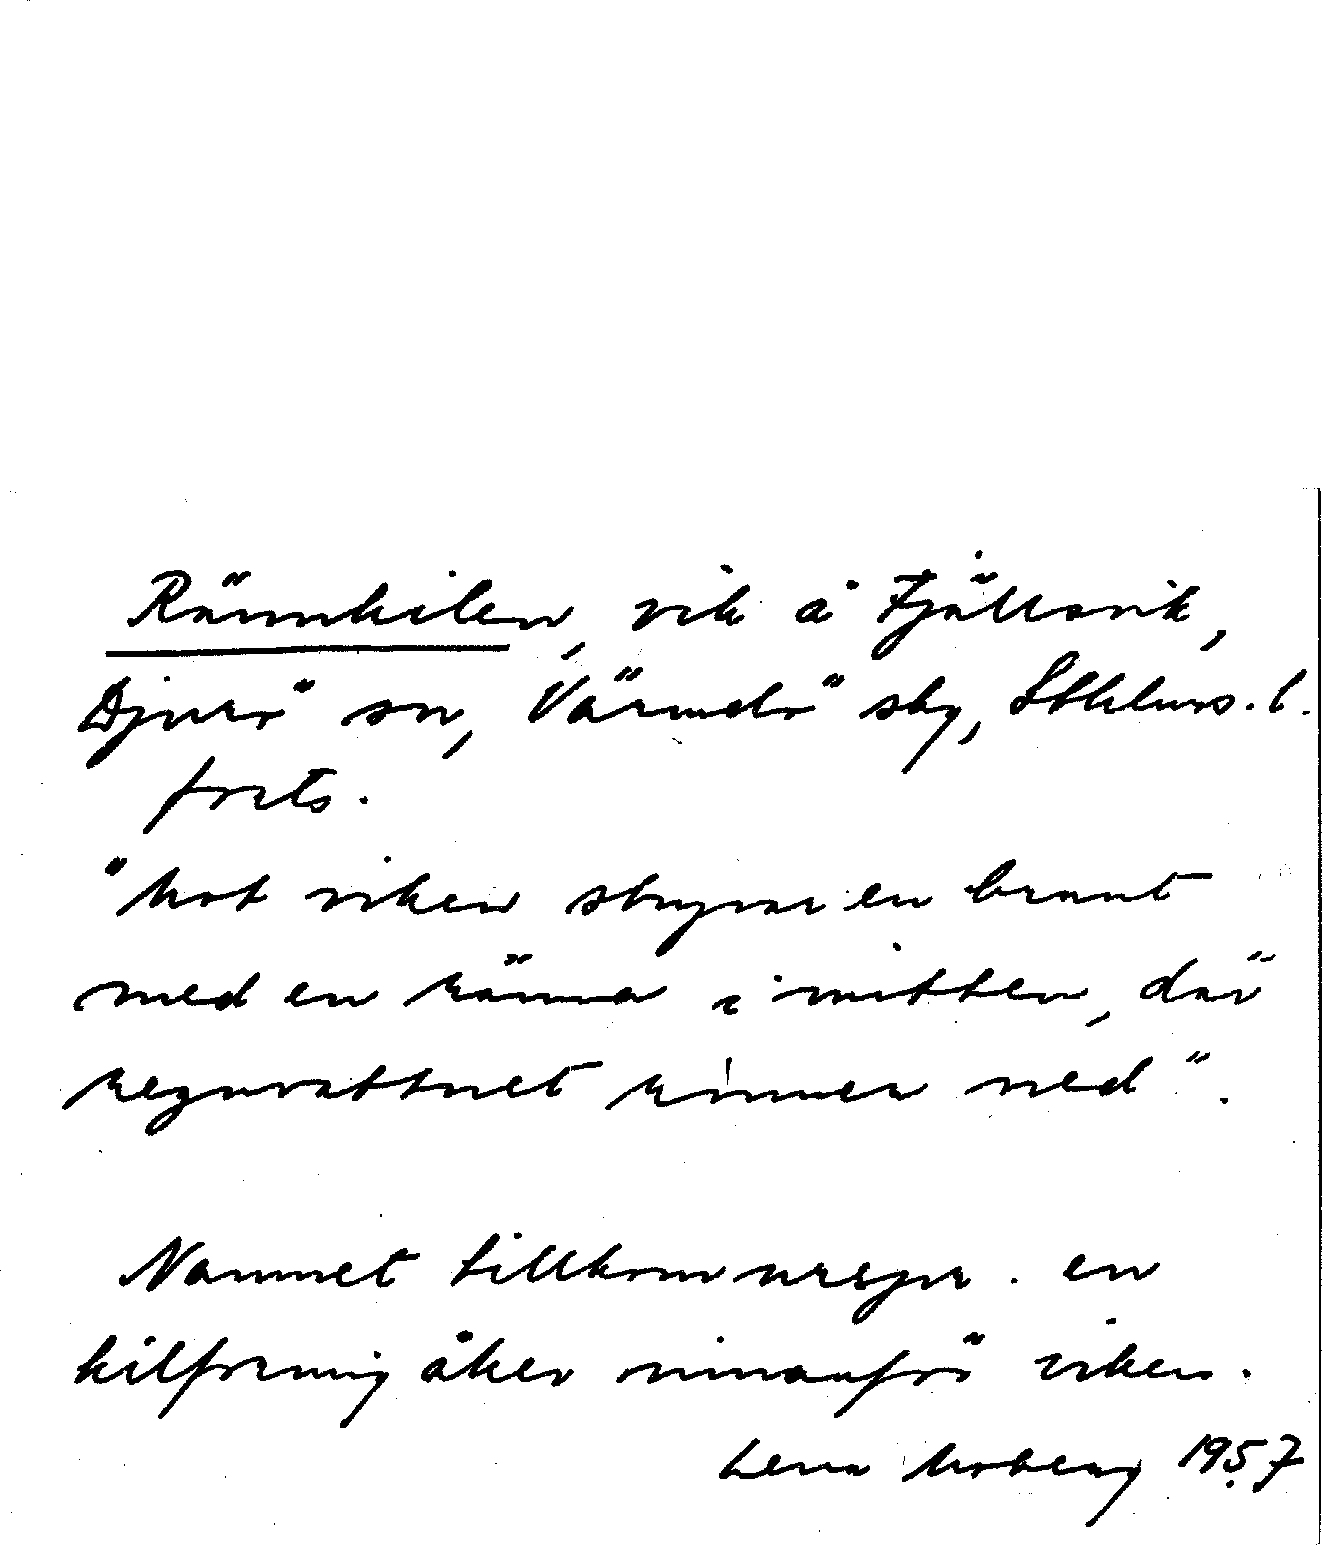 Rännkilen, vik å Fjällsvik,
Djurö sn, Värmdö sky, Sthlms. l.
forts.
"Mot viken stupar en brant
med en ränna i mitten, där
regnvattnet rinner ned".
Namnet tillkom urspr. en
kilformig åker innanför viken.
Lena Moberg 1957